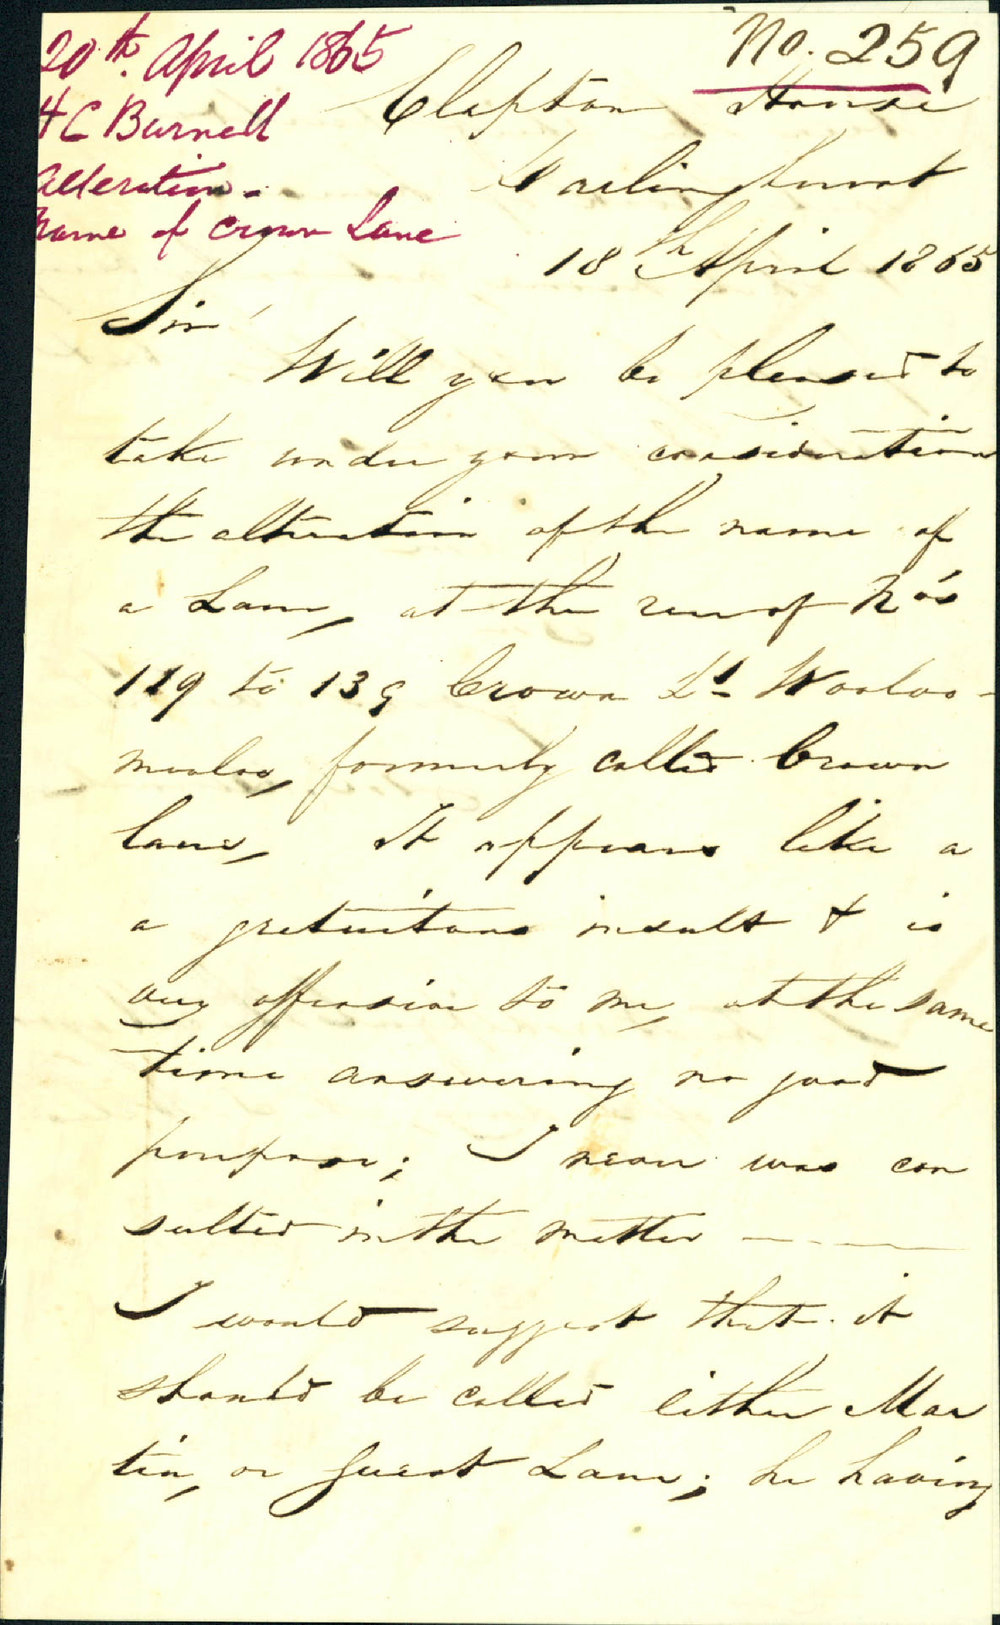 20th. April 1865
H C Burnell
Alteration -
Name of Crown Lane
No. 259
Clapton House
Darlinghurst
18th April 1865
Sir
Will you be pleased to
take under your consideration
the alteration of the name of
a Lane, at the rear of Nos
119 to 139 Crown St Wooloo-
mooloo, formerly called Crown
lane, It appears like a
a gratuitous insult & is
very offensive to me, at the same
time answering no good
purpose; I never was con
sulted in the matter
I would suggest that it
should be called either Mar
tin, or Guest Lane; he having